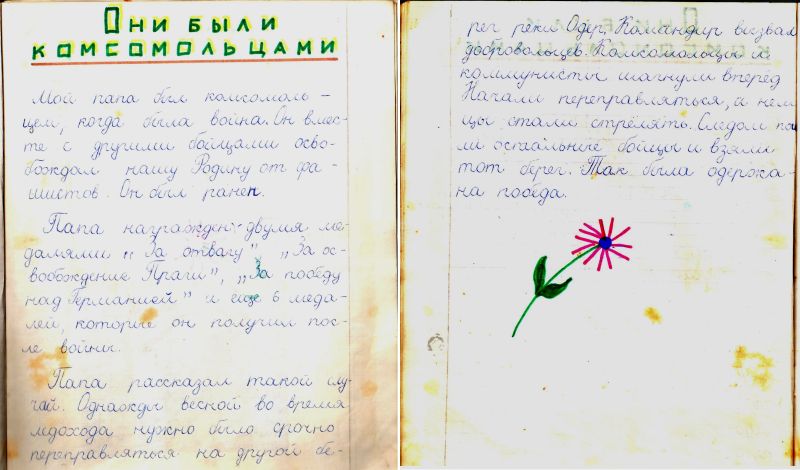 Они были
комсомольцами
Мой папа был комсомоль-
цем, когда была война. Он вмес-
те с другими бойцами осво-
бождал нашу Родину от фа-
шистов. Он был ранен.
Папа награжден двумя ме-
далями „За отвагу", „За ос-
вобождение Праги", „За победу
над Германией" и еще 6 меда-
лей, которые он получил пос-
ле войны.
Папа рассказал такой слу-
чай. Однажды весной во время
ледохода нужно было срочно
переправляться на другой бе-
рег реки Одер. Командир вызвал
добровольцев. Комсомольцы и
коммунисты шагнули вперёд
Начали переправляться, и нем-
цы стали стрелять. Следом
ли остальные бойцы и взяли
тот берег. Так была одержа-
на победа.